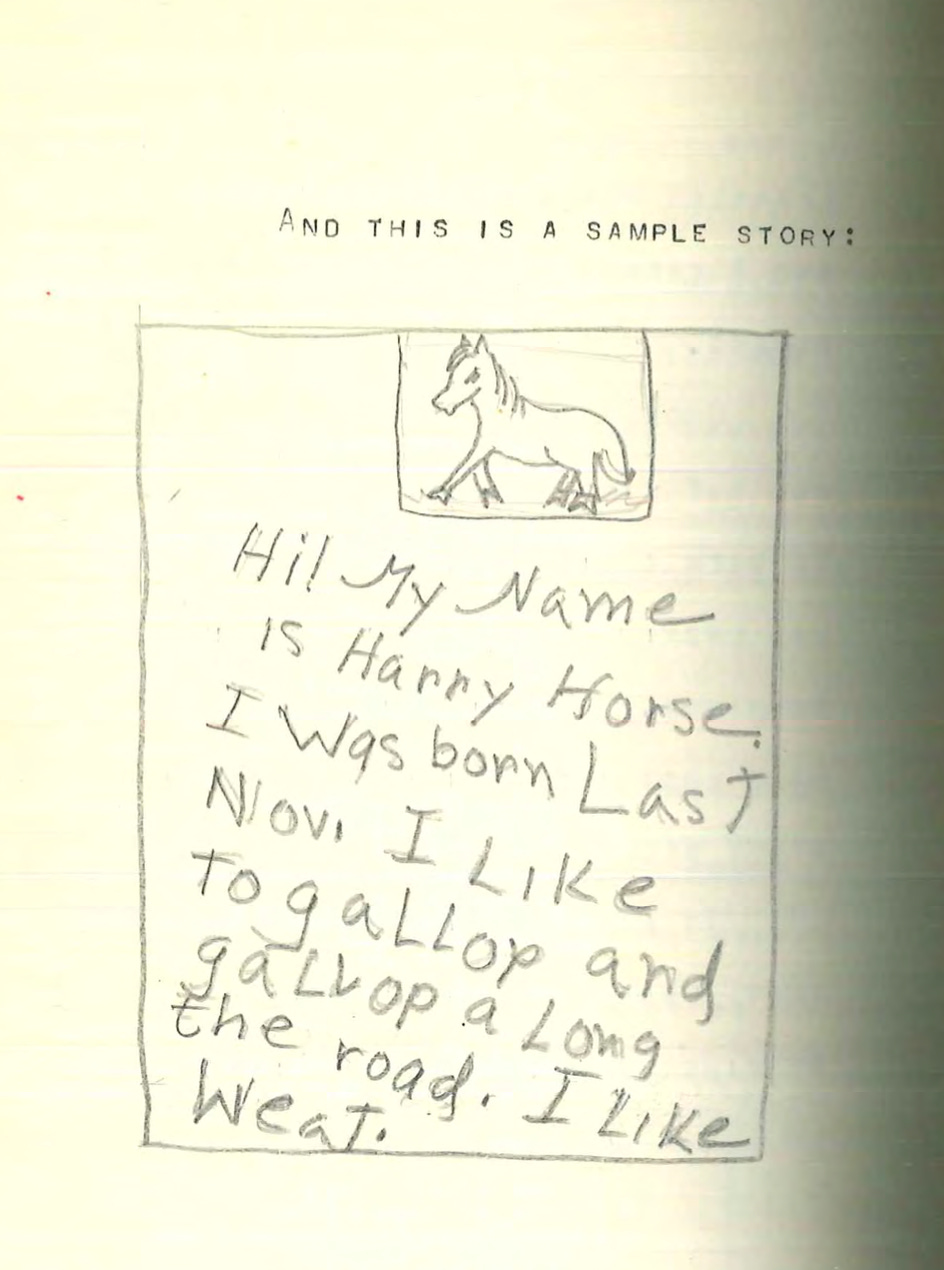 AND THIS IS A SAMPLE STORY:
Hi! My Name
is Harry Horse.
I Was born Last
Nov. I Like
To gaLLop and
gaLLop a Long
the road. I Like
Weat.